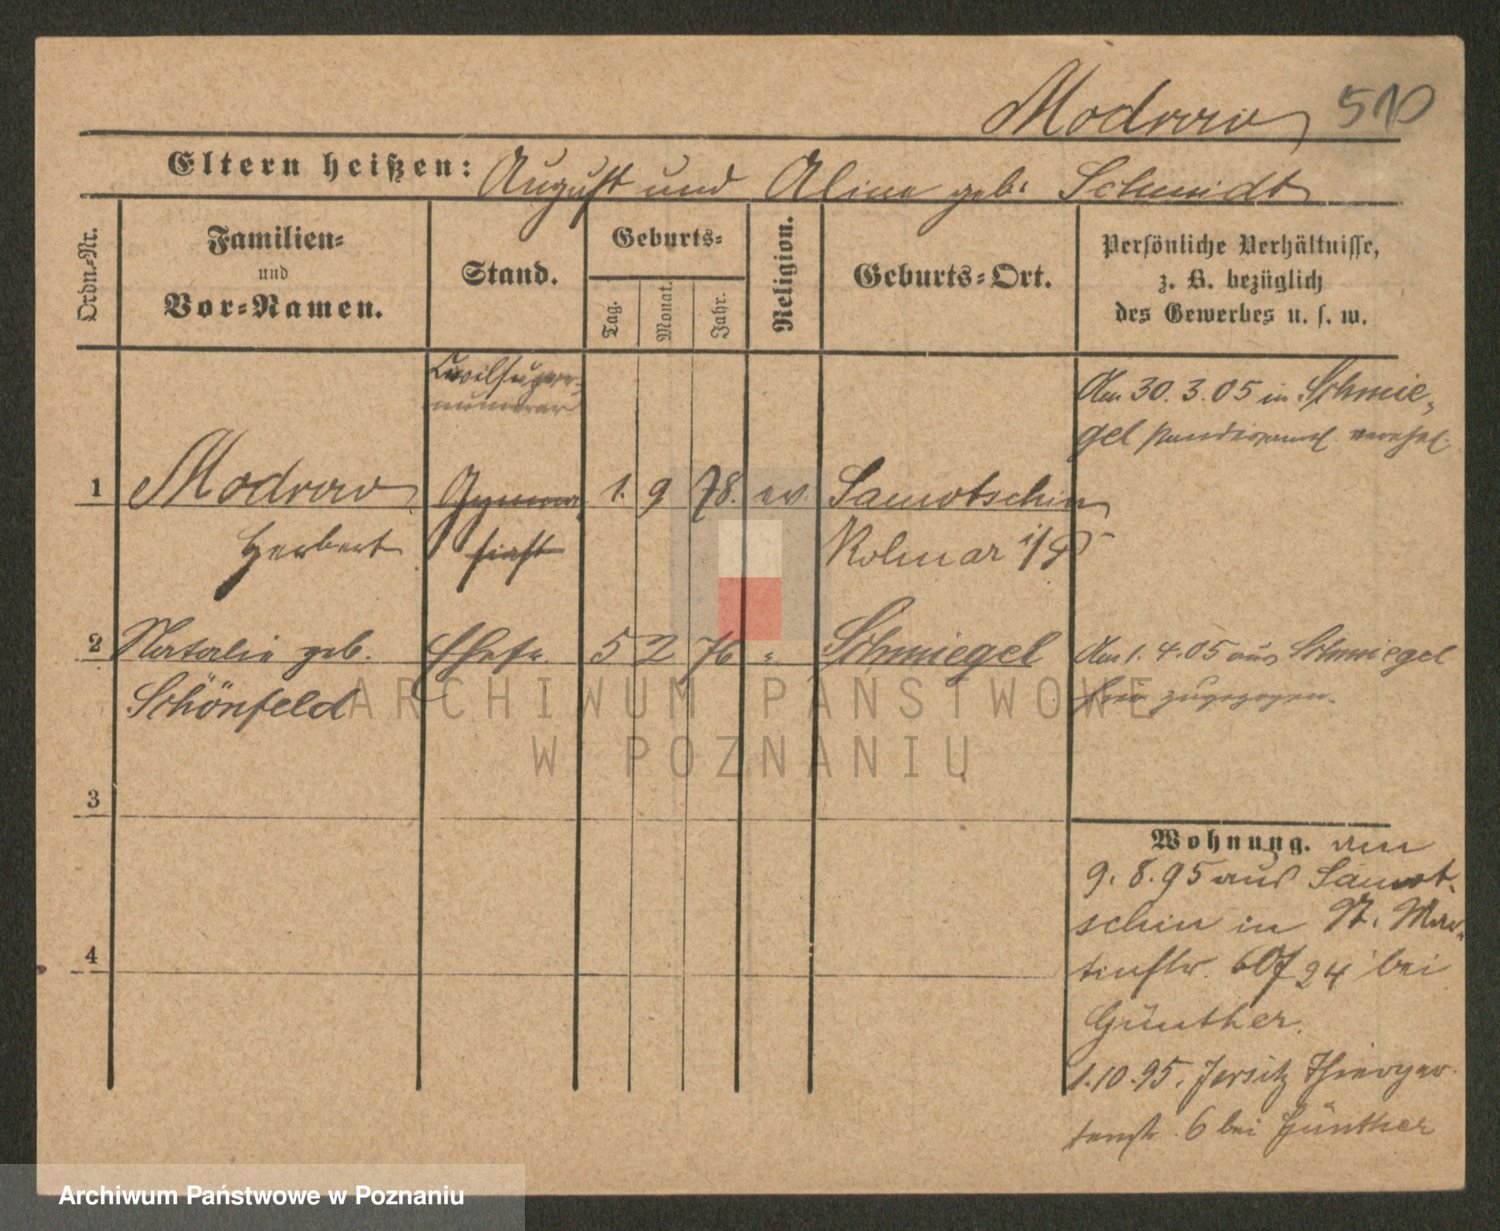 Modrow 510
Eltern heißen: August und Aline geb. Schmidt
Ordn.-Nr.
Familien-
und
Vor-Namen.
Stand.
Geburts-
Tag.
Monat.
Jahr.
Religion.
Geburts-Ort.
Persönliche Verhältnisse,
z. B. bezüglich
des Gewerbes u. s. w.
Civilsuper-
numerar
Am 30.3.05 in Schmie-
gel verehel.
1 Modrow Gymna- 1. 9 78. ev. Samotschin
Herbert siast Kolmar i/P
2 Natalie geb. Ehefr. 5 2 76 " Schmiegel Am 1.4.05 aus Schmiegel
Schönfeld hier zugezogen.
3
4
Wohnung. am
9.8.95 aus Samot-
schin in St. Mar-
tinstr. 24 bei
Günther.
1.10.95. Jersitz Thiergar-
tenstr. 6 bei Günther
ARCHIWUM PAŃSTWOWE
W POZNANIU
Archiwum Państwowe w Poznaniu